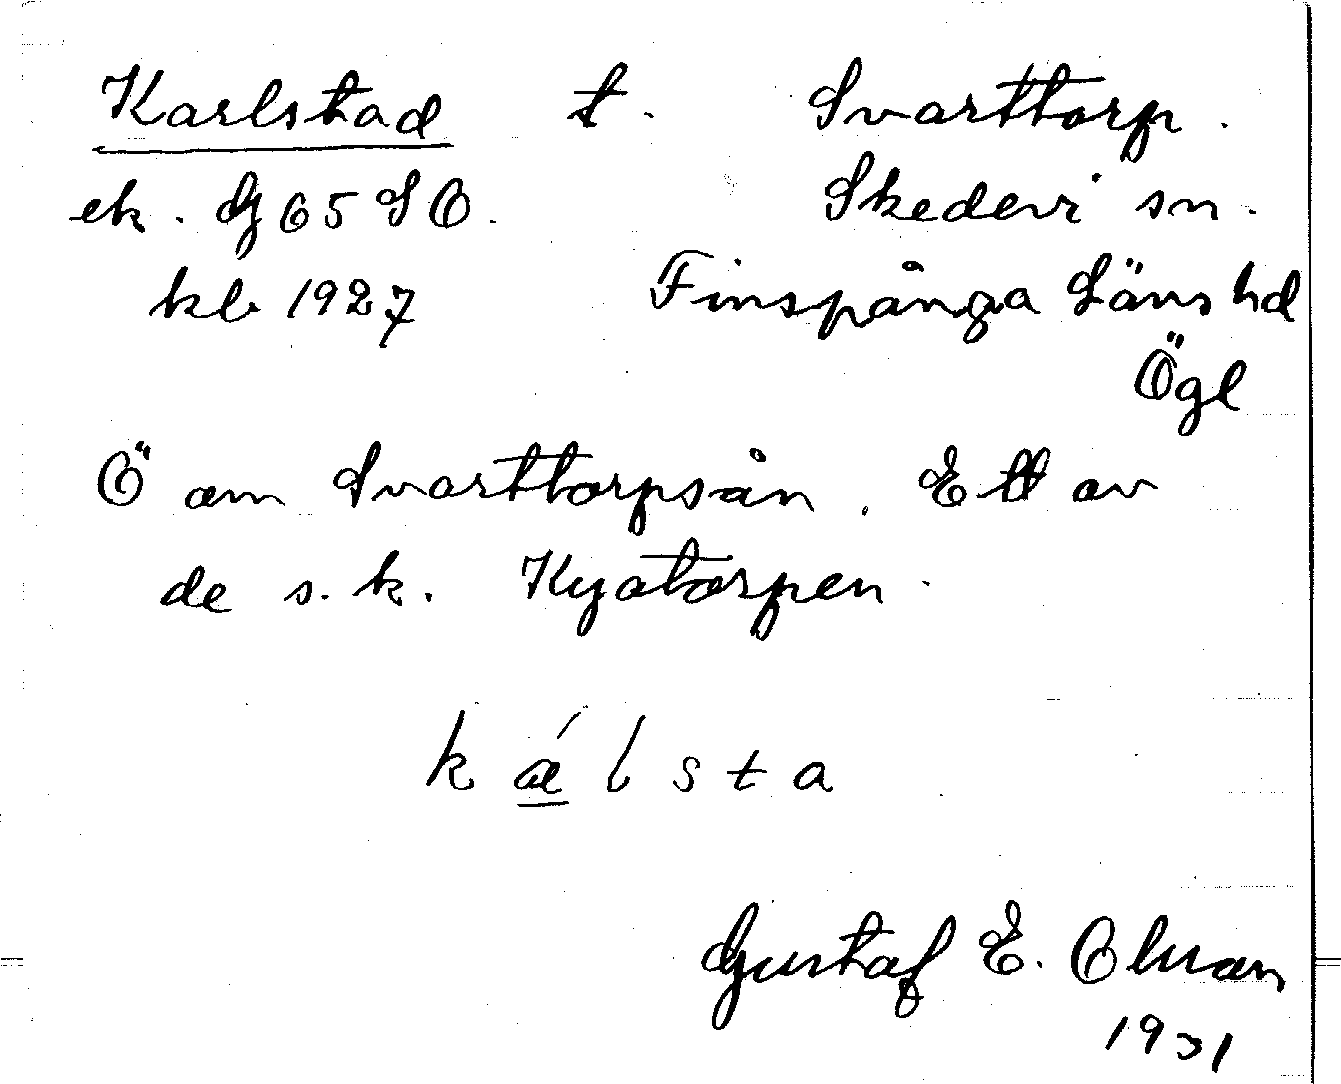 Karlstad t. Svarttorp.
ek. G 65 SO. Skedevi sn.
kb 1927 Finspånga Läns hd
Ögl
Ö om Svarttorpsån. Ett av
de s.k. Kyatorpen.
k ǽ l s t a
Gustaf E. Olsson
1931